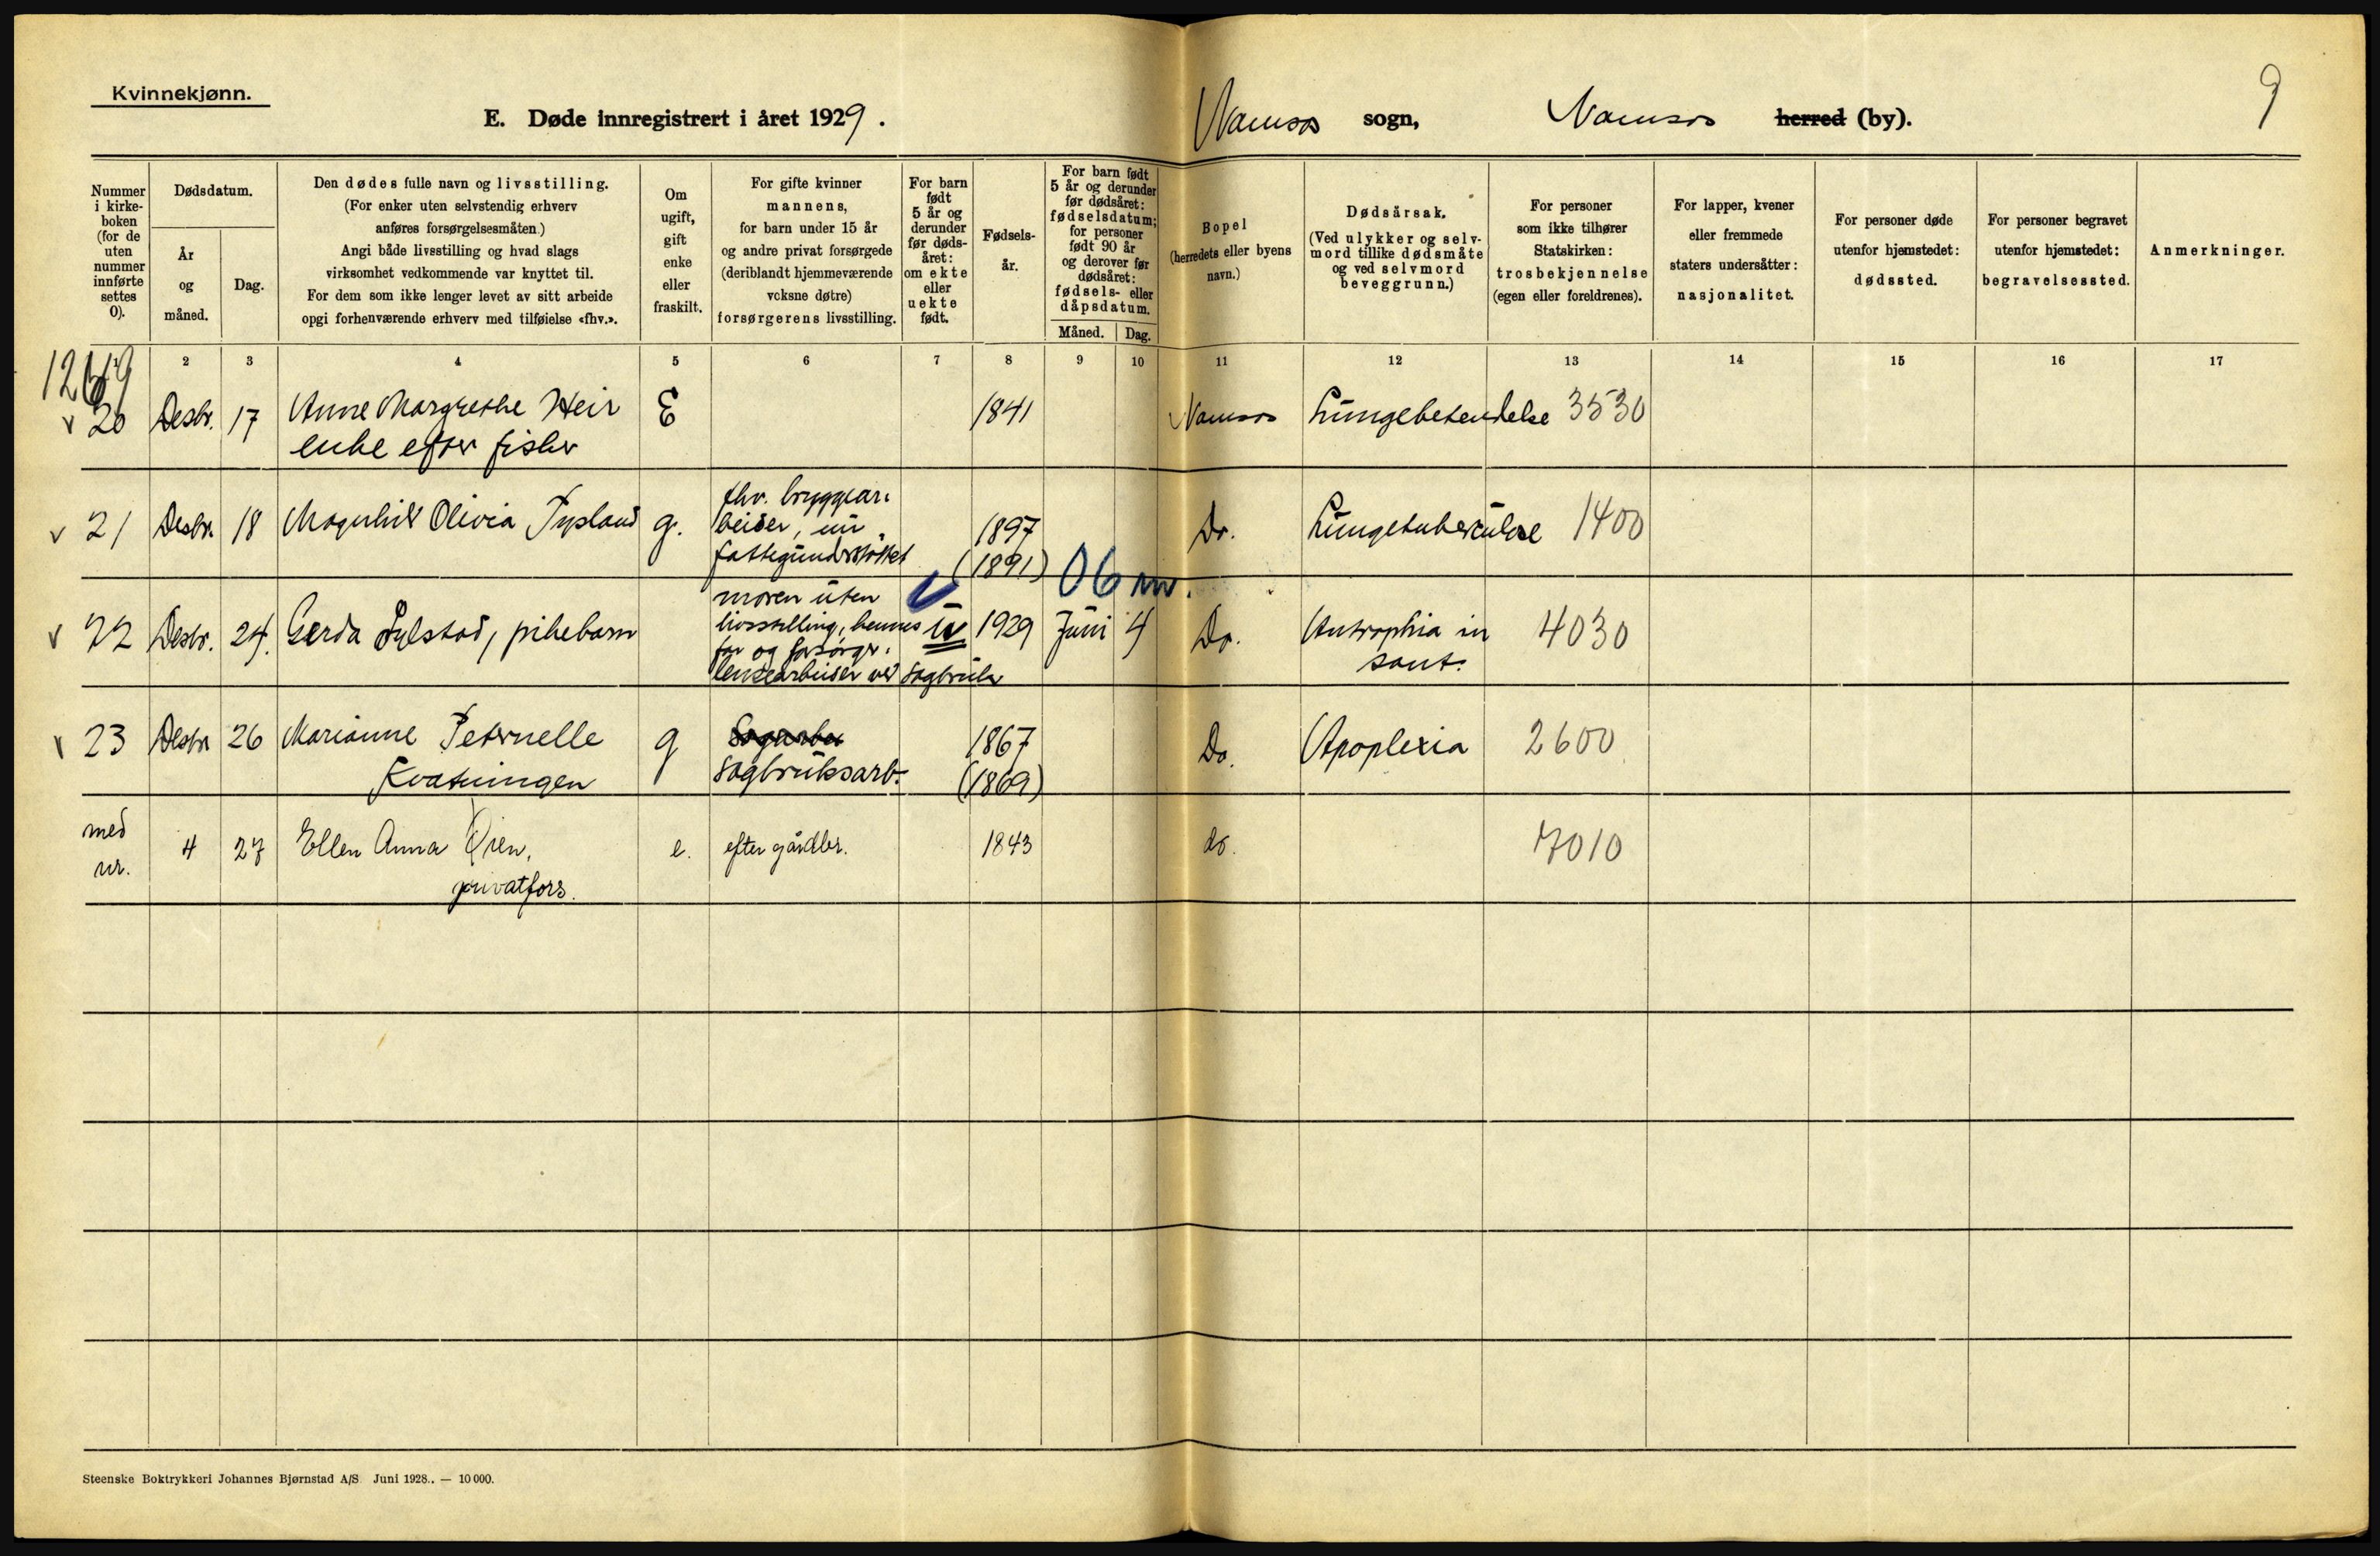 Kvinnekjønn.
E. Døde innregistrert i året 1929.
Namsos sogn, Namsos herred (by).
9
Nummer i kirke-boken (for de uten nummer innførte settes 0).
Dødsdatum.
År og måned.
Dag.
Den dødes fulle navn og livsstilling.
(For enker uten selvstendig erhverv
anføres forsørgelsesmåten.)
Angi både livsstilling og hvad slags
virksomhet vedkommende var knyttet til.
For dem som ikke lenger levet av sitt arbeide
opgi forhenværende erhverv med tilføielse «fhv.».
Om ugift, gift enke eller fraskilt.
For gifte kvinner
mannens,
for barn under 15 år
og andre privat forsørgede
(deriblandt hjemmeværende
voksne døtre)
forsørgerens livsstilling.
For barn født 5 år og derunder før døds-året: om ekte eller uekte født.
Fødsels-år.
For barn født 5 år og derunder før dødsåret: fødselsdatum; for personer født 90 år og derover før dødsåret: fødsels- eller dåpsdatum.
Måned.
Dag.
Bopel
(herredets eller byens
navn.)
Dødsårsak.
(Ved ulykker og selv-
mord tillike dødsmåte
og ved selvmord
beveggrunn.)
For personer
som ikke tilhører
Statskirken:
trosbekjennelse
(egen eller foreldrenes).
For lapper, kvener
eller fremmede
staters undersåtter:
nasjonalitet.
For personer døde
utenfor hjemstedet:
dødssted.
For personer begravet
utenfor hjemstedet:
begravelsessted.
Anmerkninger.
2 3 4 5 6 7 8 9 10 11 12 13 14 15 16 17
v 20 Desbr. 17 Anne Margrethe Heir E 1841 Namsos Lungebetendelse 3530
enke efter fisker
v 21 Desbr. 18 Magnhild Olivia g. fhv. bryggear-
beider, un
fattigunderstøttet 1897
(1891) Do. Lungetuberkulose 1400
06 m.
v 22 Desbr. 24. Gerda Sylstad, pikebarn moren uten
livsstilling, hennes
far og forsørger
lensearbeider ved sagbruk u 1929 Juni 4 Do. Autrophia in
sant. 4030
v 23 Desbr 26 Marianne Peternelle
Kvatningen g Sagarbei
Sagbruksarb. 1867
(1869) Do. Apoplexia 2600
med
nr. 4 27 Ellen Anna Øien,
privatfors. e. efter gårdbr. 1843 do. 7010
Steenske Boktrykkeri Johannes Bjørnstad A/S. Juni 1928.. — 10 000.